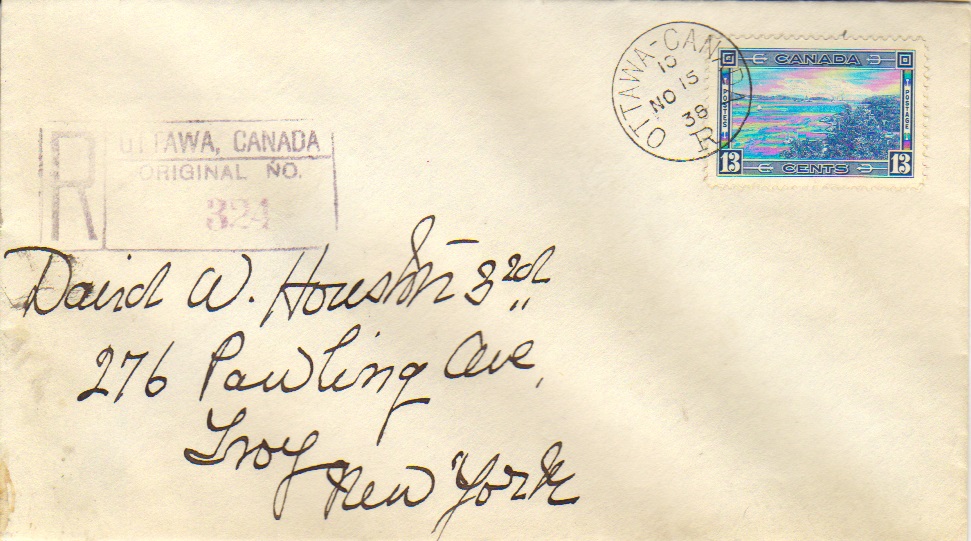 OTTAWA-CANADA
10
NO 15
38
R
CANADA
POSTES
POSTAGE
13 CENTS 13
R
OTTAWA, CANADA
ORIGINAL NO.
324
David W. Houston 3rd
276 Pawling Ave,
Troy
New York